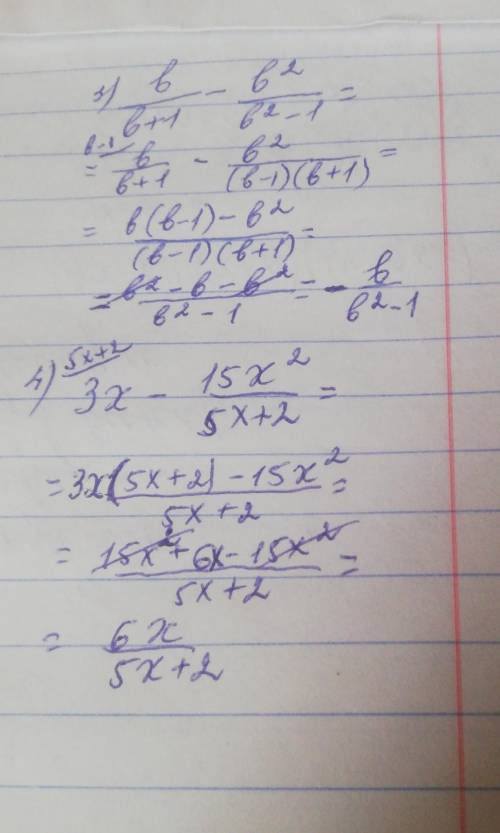 3) b/(b+1) - b²/(b²-1) =
= b-1/ b/(b+1) - b²/((b-1)(b+1)) =
= (b(b-1) - b²)/((b-1)(b+1)) =
= (b² - b - b²)/(b²-1) = - b/(b²-1)
4) 5x+2/ 3x - 15x²/(5x+2) =
= (3x(5x+2) - 15x²)/(5x+2) =
= (15x² + 6x - 15x²)/(5x+2) =
= 6x/(5x+2)